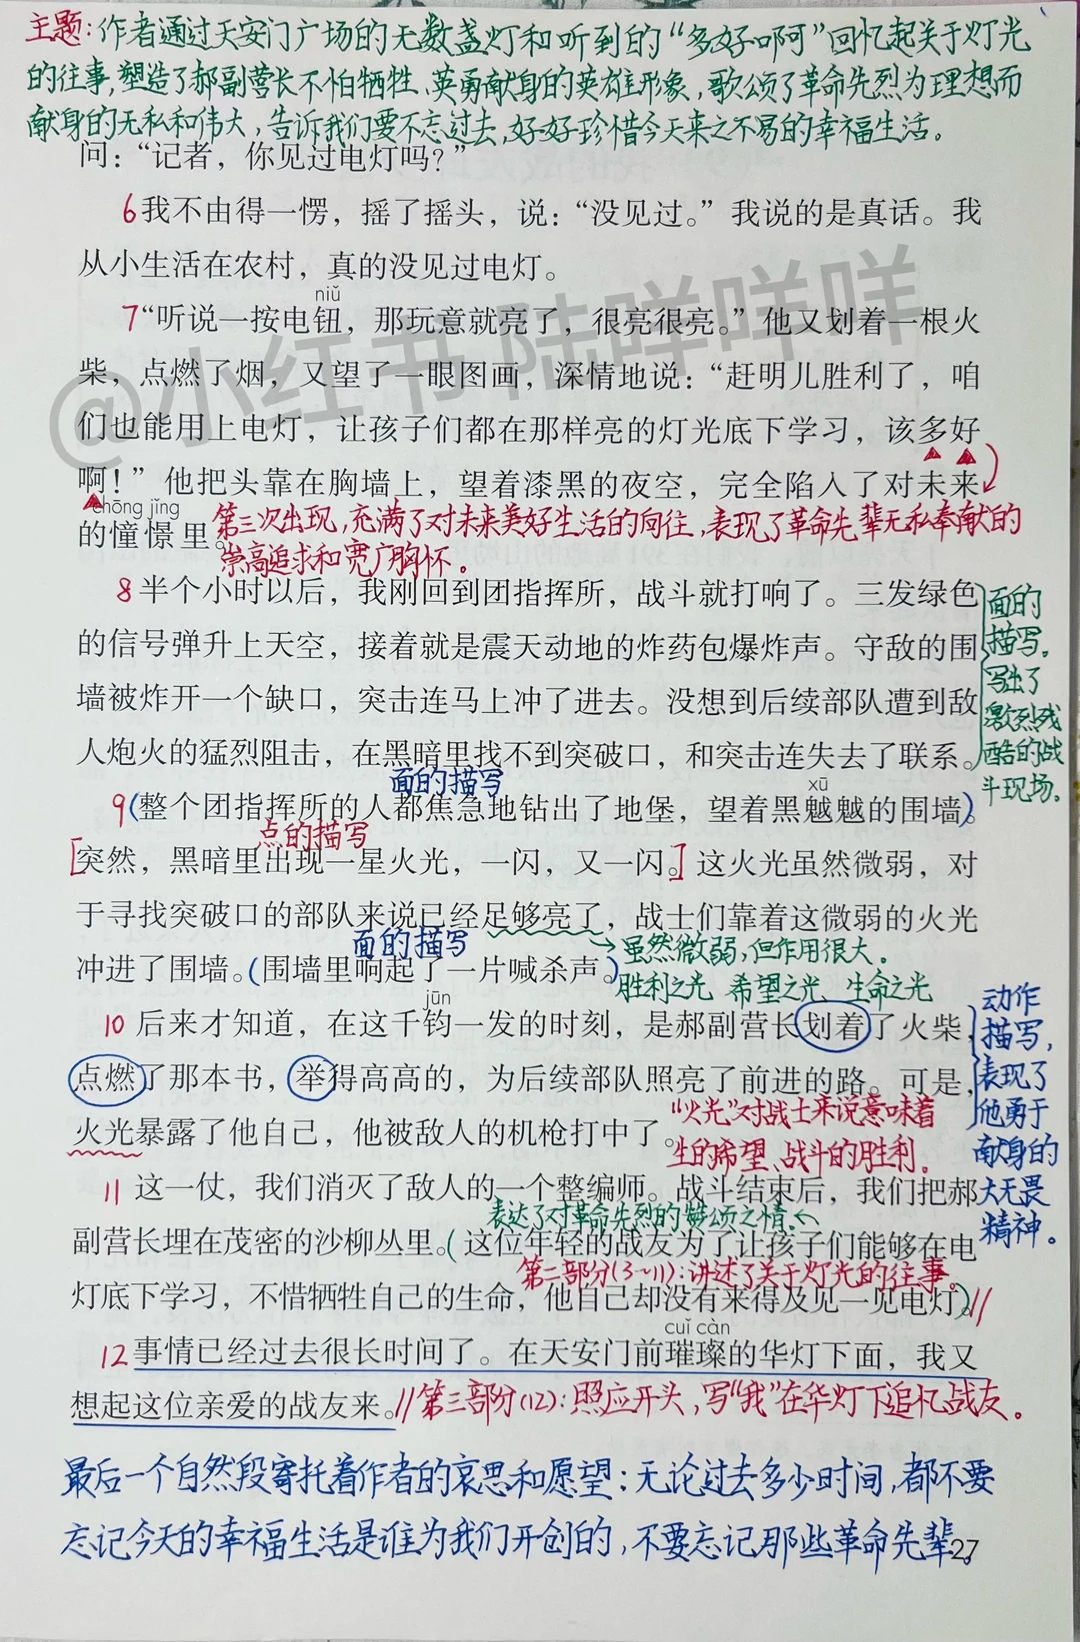 主题:作者通过天安门广场的无数盏灯和听到的“多好啊呵”回忆起关于灯光
的往事,塑造了郝副营长不怕牺牲、英勇献身的英雄形象,歌颂了革命先烈为理想而
献身的无私和伟大,告诉我们要不忘过去,好好珍惜今天来之不易的幸福生活。
问:“记者,你见过电灯吗?”
6我不由得一愣,摇了摇头,说:“没见过。”我说的是真话。我
从小生活在农村,真的没见过电灯。
niǔ
7“听说一按电钮,那玩意就亮了,很亮很亮。”他又划着一根火
柴,点燃了烟,又望了一眼图画,深情地说:“赶明儿胜利了,咱
们也能用上电灯,让孩子们都在那样亮的灯光底下学习,该多好
啊!”他把头靠在胸墙上,望着漆黑的夜空,完全陷入了对未来
chōng jǐng
的憧憬里。第三次出现,充满了对未来美好生活的向往,表现了革命先辈无私奉献的
崇高追求和宽广胸怀。
8半个小时以后,我刚回到团指挥所,战斗就打响了。三发绿色
的信号弹升上天空,接着就是震天动地的炸药包爆炸声。守敌的围
墙被炸开一个缺口,突击连马上冲了进去。没想到后续部队遭到敌
人炮火的猛烈阻击,在黑暗里找不到突破口,和突击连失去了联系。
面的
描写。
写出了
激烈残
酷的战
斗现场。
面的描写
xū
9(整个团指挥所的人都焦急地钻出了地堡,望着黑魆魆的围墙)。
点的描写
[突然,黑暗里出现一星火光,一闪,又一闪。]这火光虽然微弱,对
于寻找突破口的部队来说已经足够亮了,战士们靠着这微弱的火光
面的描写
虽然微弱,但作用很大。
冲进了围墙。(围墙里响起了一片喊杀声。)
胜利之光、希望之光、生命之光
jūn
10后来才知道,在这千钧一发的时刻,是郝副营长划着了火柴,
点燃了那本书,举得高高的,为后续部队照亮了前进的路。可是,
火光暴露了他自己,他被敌人的机枪打中了。
“火光”对战士来说意味着
生的希望、战斗的胜利。
动作
描写,
表现了
他勇于
献身的
大无畏
精神。
11这一仗,我们消灭了敌人的一个整编师。战斗结束后,我们把郝
表达了对革命先烈的赞颂之情。
副营长埋在茂密的沙柳丛里。(这位年轻的战友为了让孩子们能够在电
第二部分(3~11):讲述了关于灯光的往事。
灯底下学习,不惜牺牲自己的生命,他自己却没有来得及见一见电灯。)//
cuǐ càn
12事情已经过去很长时间了。在天安门前璀璨的华灯下面,我又
想起这位亲爱的战友来。//第三部分(12):照应开头,写“我”在华灯下追忆战友。
最后一个自然段寄托着作者的哀思和愿望:无论过去多少时间,都不要
忘记今天的幸福生活是谁为我们开创的,不要忘记那些革命先辈。
27
@小红书 陆咩咩咩